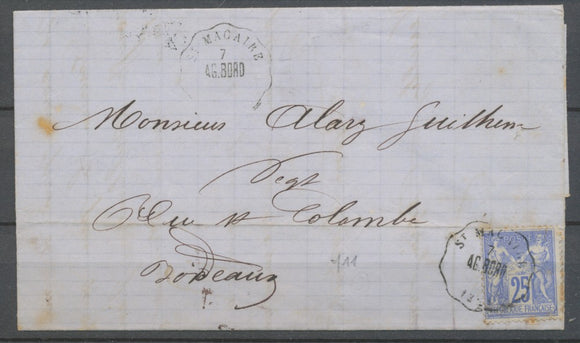 ST MACAIRE
7
AG.BORD
Monsieur Alary Guilhem
Negt
Rue St Colombe
Bordeaux
ST MACAIRE
7
AG.BORD
25